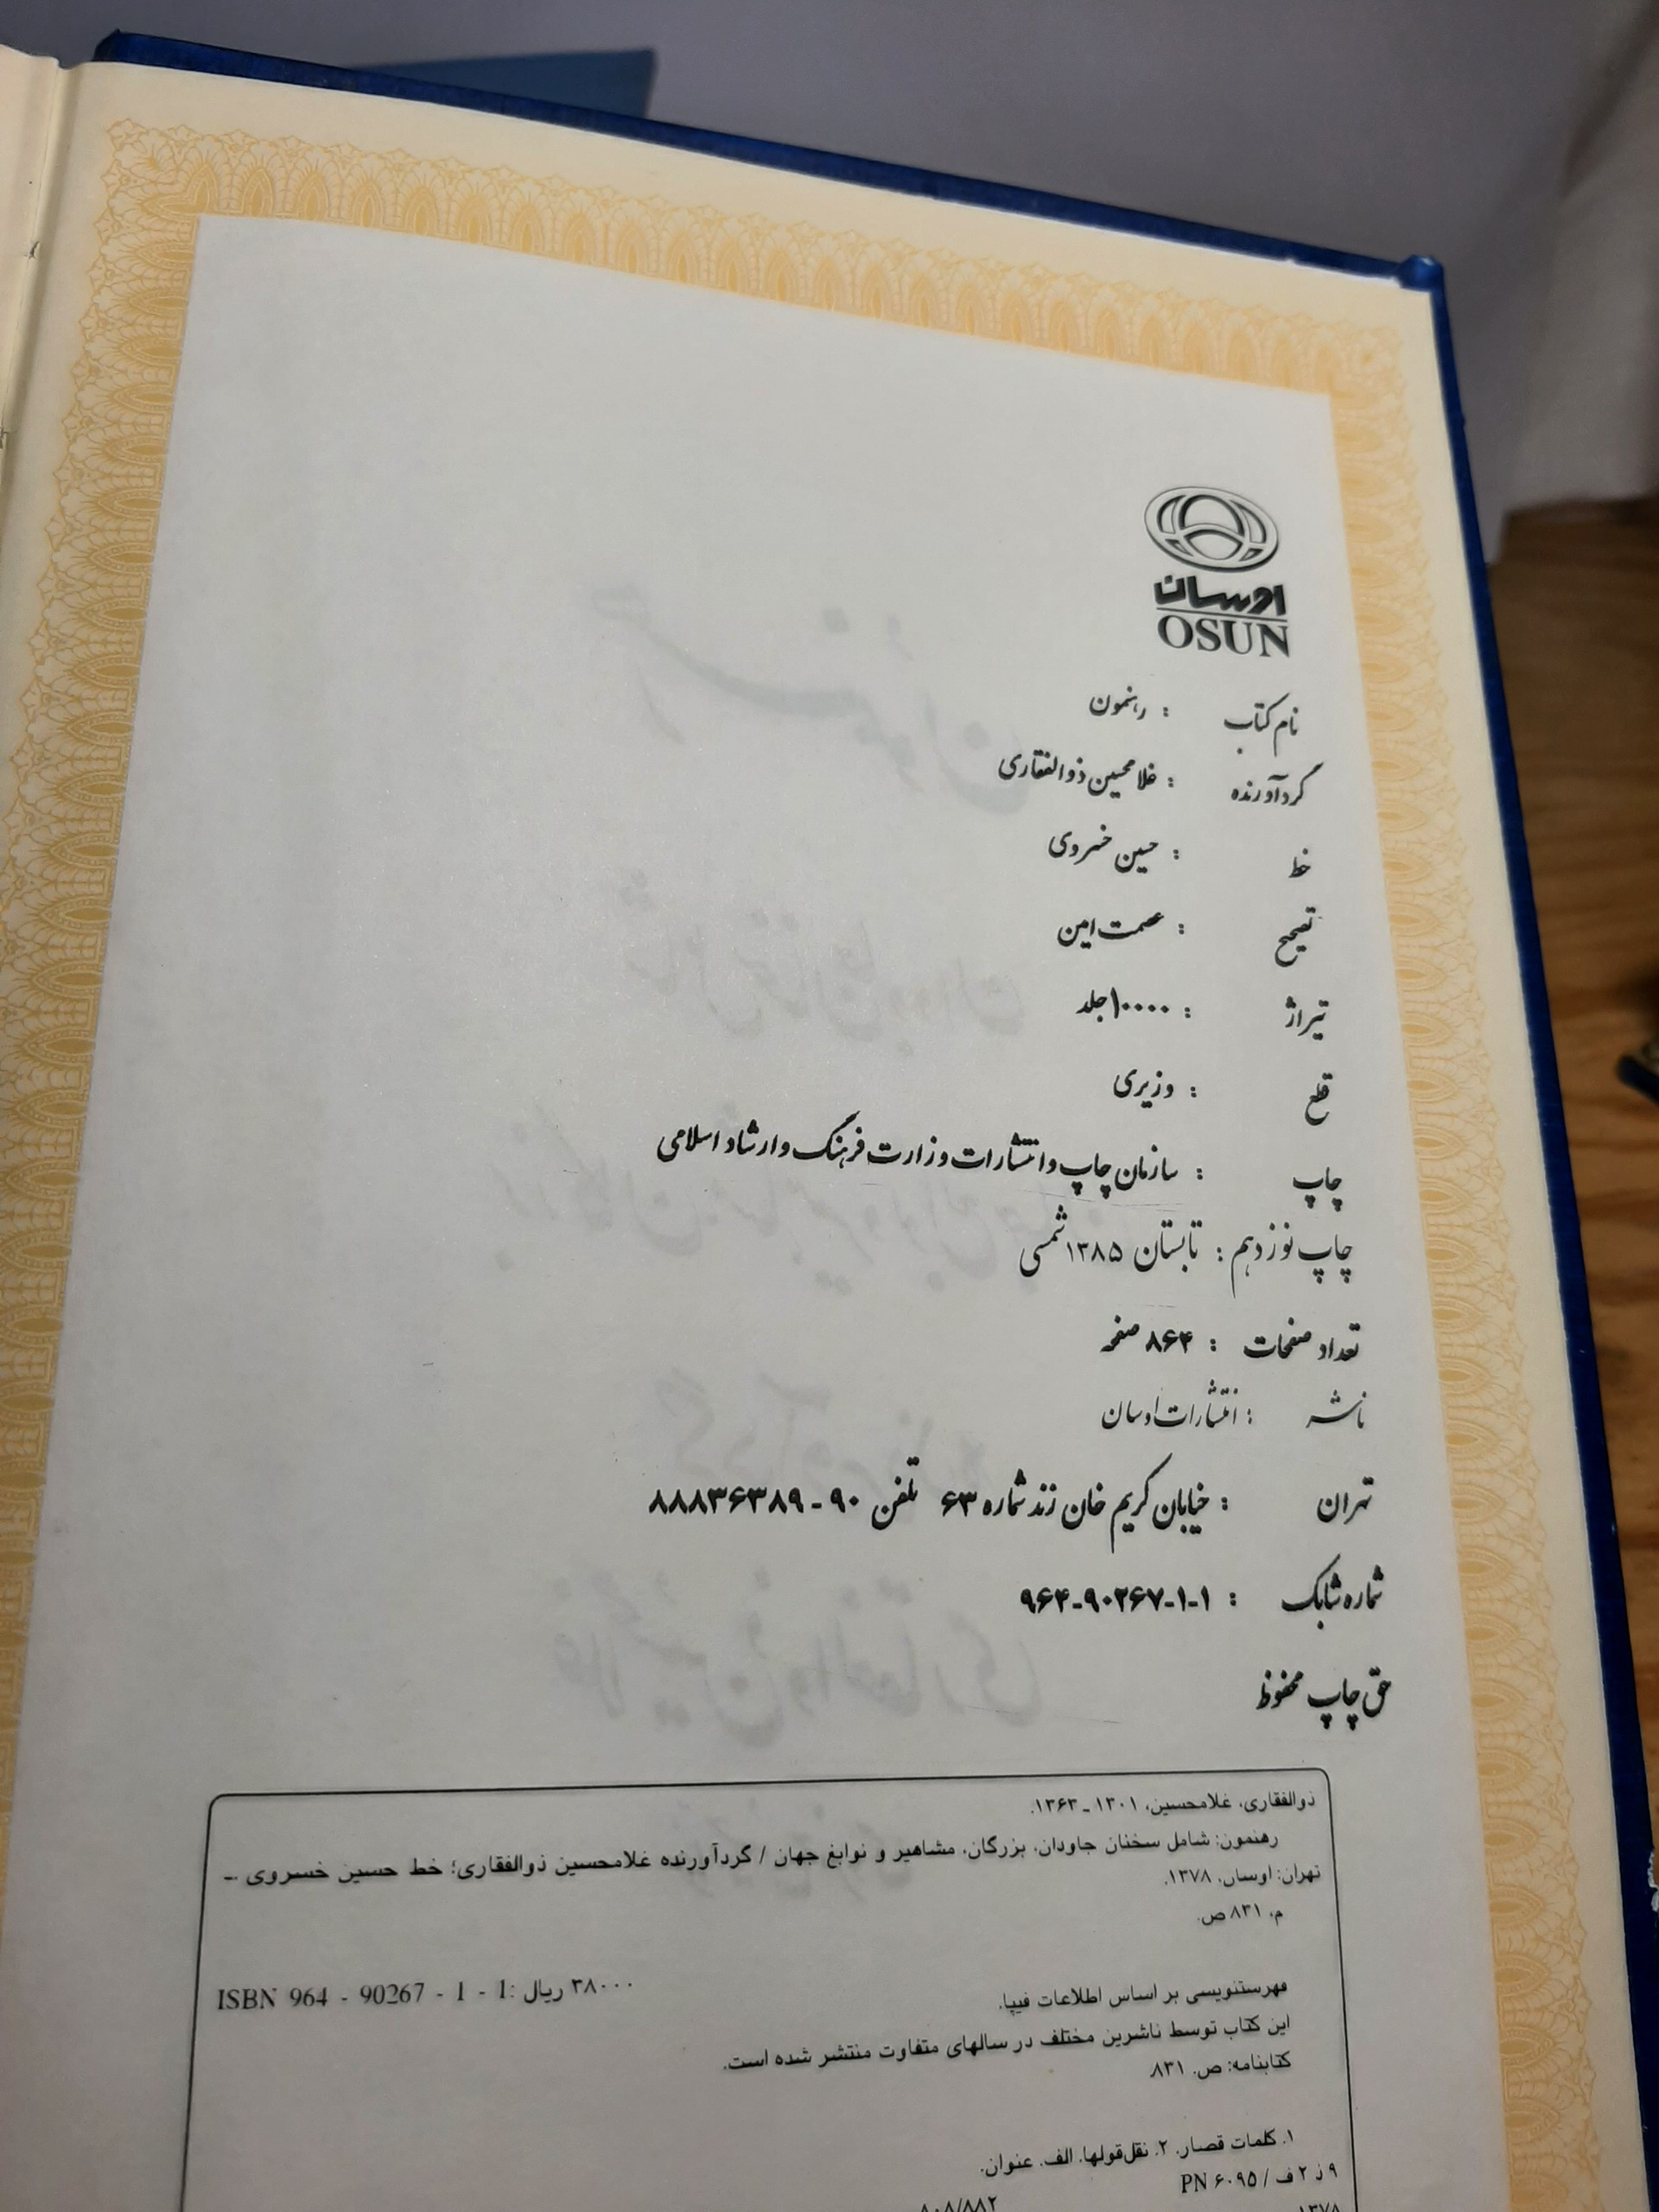 اوسان
OSUN
نام کتاب : رهنمون
گردآورنده : غلامحسین ذوالفقاری
خط : حسین خسروی
تصحیح : عصمت امین
تیراژ : ۱۰۰۰۰ جلد
قطع : وزیری
چاپ : سازمان چاپ و انتشارات وزارت فرهنگ و ارشاد اسلامی
چاپ نوزدهم : تابستان ۱۳۸۵ شمسی
تعداد صفحات : ۸۶۴ صفحه
ناشر : انتشارات اوسان
تهران : خیابان کریم خان زند شماره ۶۳ تلفن ۹۰ - ۸۸۸۳۶۳۸۹
شماره شابک : ۹۶۴-۹۰۲۶۷-۱-۱
حق چاپ محفوظ
ذوالفقاری، غلامحسین، ۱۳۰۱ ـ ۱۳۶۳.
رهنمون: شامل سخنان جاودان، بزرگان، مشاهیر و نوابغ جهان / گردآورنده غلامحسین ذوالفقاری؛ خط حسین خسروی .--
تهران: اوسان، ۱۳۷۸.
م، ۸۳۱ ص.
ISBN 964 - 90267 - 1 - 1: ۳۸۰۰۰ ریال
فهرستنویسی بر اساس اطلاعات فیپا.
این کتاب توسط ناشرین مختلف در سالهای متفاوت منتشر شده است.
کتابنامه: ص. ۸۳۱.
۱. کلمات قصار. ۲. نقل‌قولها. الف. عنوان.
۹ ز ۲ ف / PN ۶۰۹۵
۸۰۸/۸۸۲
۱۳۷۸